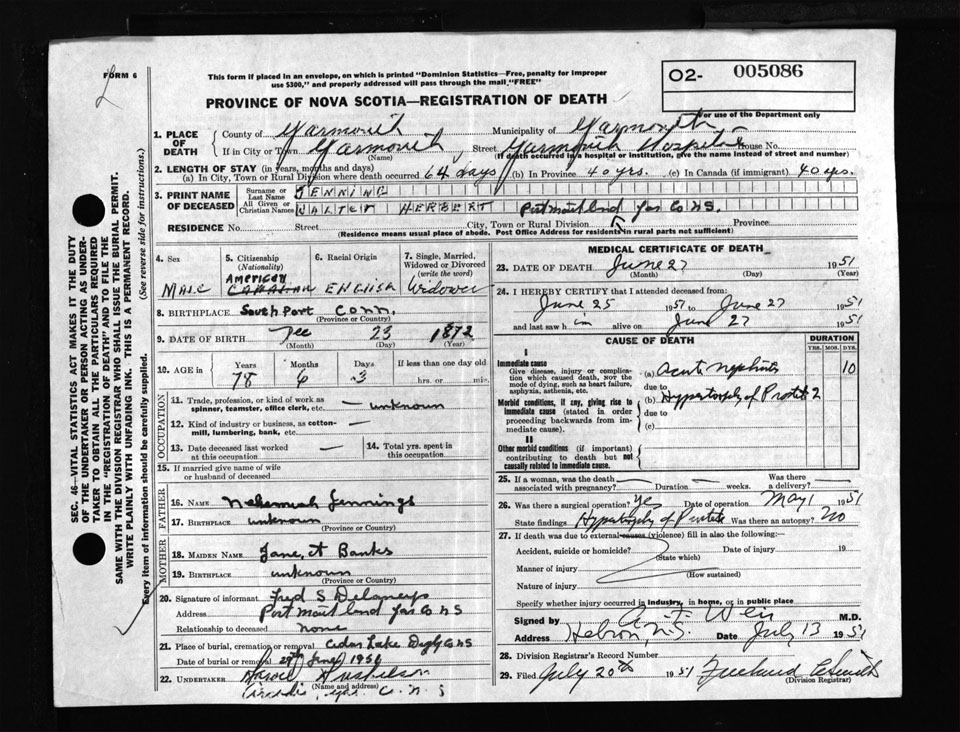 FORM 6
This form if placed in an envelope, on which is printed "Dominion Statistics—Free, penalty for improper
use $300," and properly addressed will pass through the mail "FREE"
O2- 005086
PROVINCE OF NOVA SCOTIA—REGISTRATION OF DEATH
For use of the Department only
1. PLACE OF DEATH
County of Yarmouth Municipality of Yarmouth
If in City or Town Yarmouth, Street Yarmouth Hospital House No.
(Name) (If death occurred in a hospital or institution, give the name instead of street and number)
2. LENGTH OF STAY (in years, months and days)
(a) In City, Town or Rural Division where death occurred 64 days (b) In Province 40 yrs. (c) In Canada (if immigrant) 40 yrs.
3. PRINT NAME OF DECEASED
Surname or Last Name
All Given or Christian Names WALTER HERBERT Port Maitland Yar Co NS.
RESIDENCE No. Street City, Town or Rural Division Province
(Residence means usual place of abode. Post Office Address for residents in rural parts not sufficient)
4. Sex Male
5. Citizenship (Nationality) AMERICAN
6. Racial Origin ENGLISH
7. Single, Married, Widowed or Divorced (write the word) Widower
8. BIRTHPLACE South Port Conn.
(Province or Country)
9. DATE OF BIRTH Dec 23 1872
(Month) (Day) (Year)
10. AGE in Years Months Days If less than one day old
78 6 3 hrs. or min.
OCCUPATION
11. Trade, profession, or kind of work as spinner, teamster, office clerk, etc. — unknown
12. Kind of industry or business, as cotton-mill, lumbering, bank, etc. —
13. Date deceased last worked at this occupation —
14. Total yrs. spent in this occupation
15. If married give name of wife or husband of deceased
FATHER
16. NAME Nehemiah Jennings
17. BIRTHPLACE unknown
(Province or Country)
MOTHER
18. MAIDEN NAME Jane A Banks
19. BIRTHPLACE unknown
(Province or Country)
20. Signature of informant Fred S Delaney
Address Port Maitland Yar Co NS
Relationship to deceased none
21. Place of burial, cremation or removal Cedar Lake Digby Co NS
Date of burial or removal 29th June 1951
22. UNDERTAKER
(Name and address)
MEDICAL CERTIFICATE OF DEATH
23. DATE OF DEATH June 27 1951
(Month) (Day) (Year)
24. I HEREBY CERTIFY that I attended deceased from:
June 25 1951 to June 27 1951
and last saw him alive on June 27 1951
CAUSE OF DEATH
DURATION
YRS. MOS. DYS.
I
Immediate cause
Give disease, injury or complication which caused death, not the mode of dying, such as heart failure, asphyxia, asthenia, etc.
(a) Acute Nephritis 10
due to
Morbid conditions, if any, giving rise to immediate cause (stated in order proceeding backwards from immediate cause).
(b) Hypertrophy of Prostate 2
due to
(c)
II
Other morbid conditions (if important) contributing to death but not causally related to immediate cause.
25. If a woman, was the death associated with pregnancy? Duration weeks. Was there a delivery?
26. Was there a surgical operation? Yes Date of operation May 1 1951
State findings Hypertrophy of Prostate Was there an autopsy? No
27. If death was due to external causes (violence) fill in also the following:—
Accident, suicide or homicide? Date of injury 19
(State which)
Manner of injury
(How sustained)
Nature of injury
Specify whether injury occurred in industry, in home, or in public place
Signed by A. F. Weir M.D.
Address Hebron, N.S. Date July 13 1951
28. Division Registrar's Record Number
29. Filed July 20th 1951
(Division Registrar)
SEC. 46—VITAL STATISTICS ACT MAKES IT THE DUTY
OF THE UNDERTAKER OR PERSON ACTING AS UNDER-
TAKER TO OBTAIN ALL THE PARTICULARS REQUIRED
IN THE "REGISTRATION OF DEATH" AND TO FILE THE
SAME WITH THE DIVISION REGISTRAR WHO SHALL ISSUE THE BURIAL PERMIT.
WRITE PLAINLY WITH UNFADING INK. THIS IS A PERMANENT RECORD.
Every item of information should be carefully supplied. (See reverse side for instructions.)